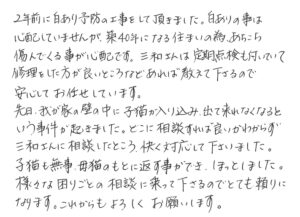 2年前に白あり予防の工事をして頂きました。白ありの事は
心配していませんが、築40年になる住まいの為、あちこち
傷んでくる事が心配です。三和さんは定期点検も付いていて
修理をした方が良いところなどあれば教えて下さるので
安心してお任せしています。
先日、我が家の壁の中に子猫が入り込み、出て来れなくなると
いう事件が起きました。どこに相談すれば良いかわからず
三和さんに相談したところ、快く対応して下さいました。
子猫も無事、母猫のもとに返す事ができ、ほっとしました。
様々な困りごとの相談に乗って下さるのでとても頼りに
なります。これからもよろしくお願いします。